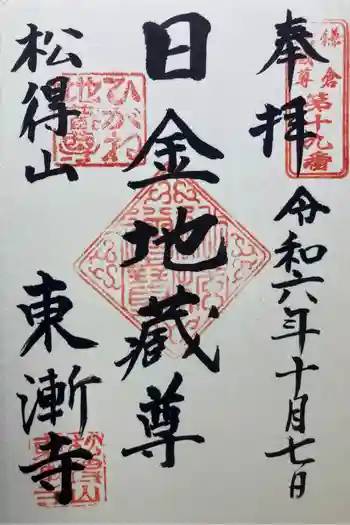 奉拝
令和六年十月七日
日金地蔵尊
松得山
東漸寺
鎌倉
第十九番
ひがね
地蔵尊